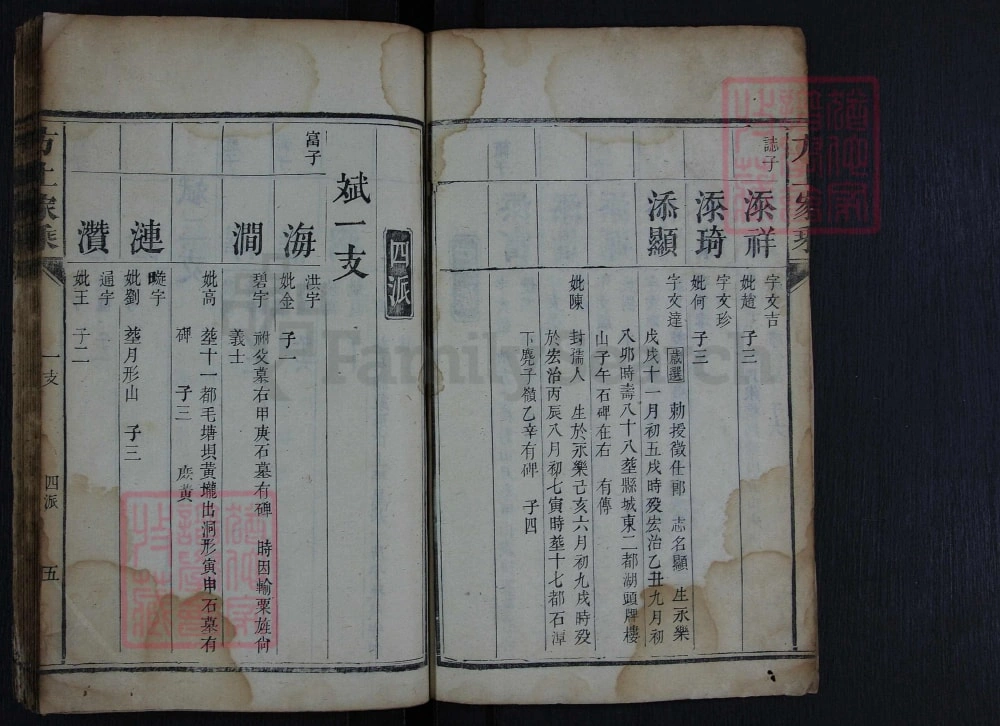 誌子
添祥
字文吉
妣趙 子三
添琦
字文珍
妣何 子三
添顯
字文達 歲選 勅授徵仕郎 志名顯 生永樂
戊戌十一月初五戌時殁宏治乙丑九月初
八卯時壽八十八塟縣城東二都湖頭牌樓
山子午石碑在右 有傳
妣陳 封孺人 生於永樂己亥六月初九戌時殁
於宏治丙辰八月初七寅時塟十七都石潭
下麂子嶺乙辛有碑 子四
四派
斌一支
富子
海
洪字
妣金 子一
澗
碧字 祔父墓右甲庚石墓有碑 時因輸粟旌尙
義士
妣高 塟十一都毛塘垻黃壠出洞形寅申石墓有
碑 子三 庶黃
漣
字
妣劉 塟月形山 子三
灒
通字
妣王 子二
一支 四派 五
FamilySearch